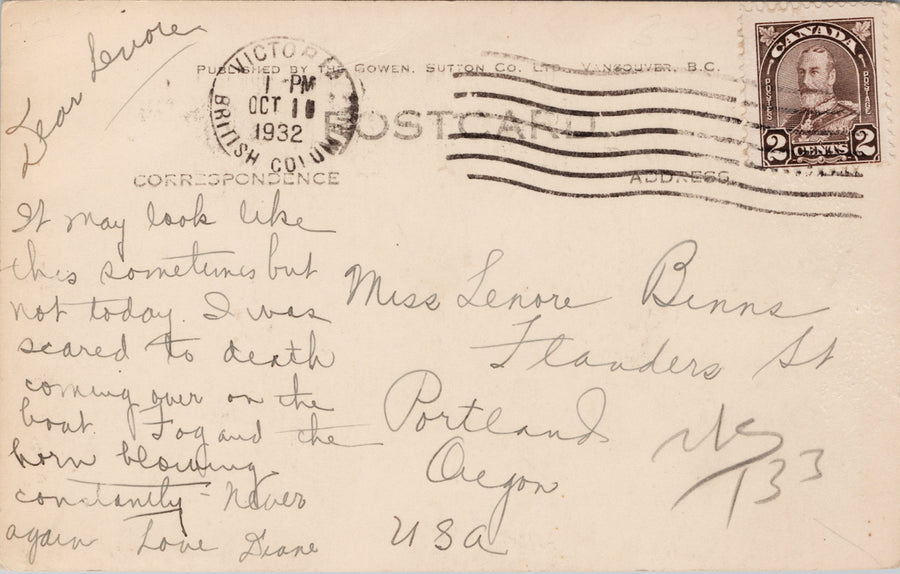 Dear Lenore
VICTORIA
1 PM
OCT 1
1932
BRITISH COLUMBIA
PUBLISHED BY THE GOWEN, SUTTON CO. LTD. VANCOUVER, B.C.
POSTCARD
CORRESPONDENCE
ADDRESS
CANADA
POSTES
POSTAGE
2 CENTS 2
It may look like
this sometimes but
not today. I was
scared to death
coming over on the
boat. Fog and the
horn blowing
constantly - Never
again Love Diane
Miss Lenore Binns
Flanders St
Portland
Oregon
USA
133